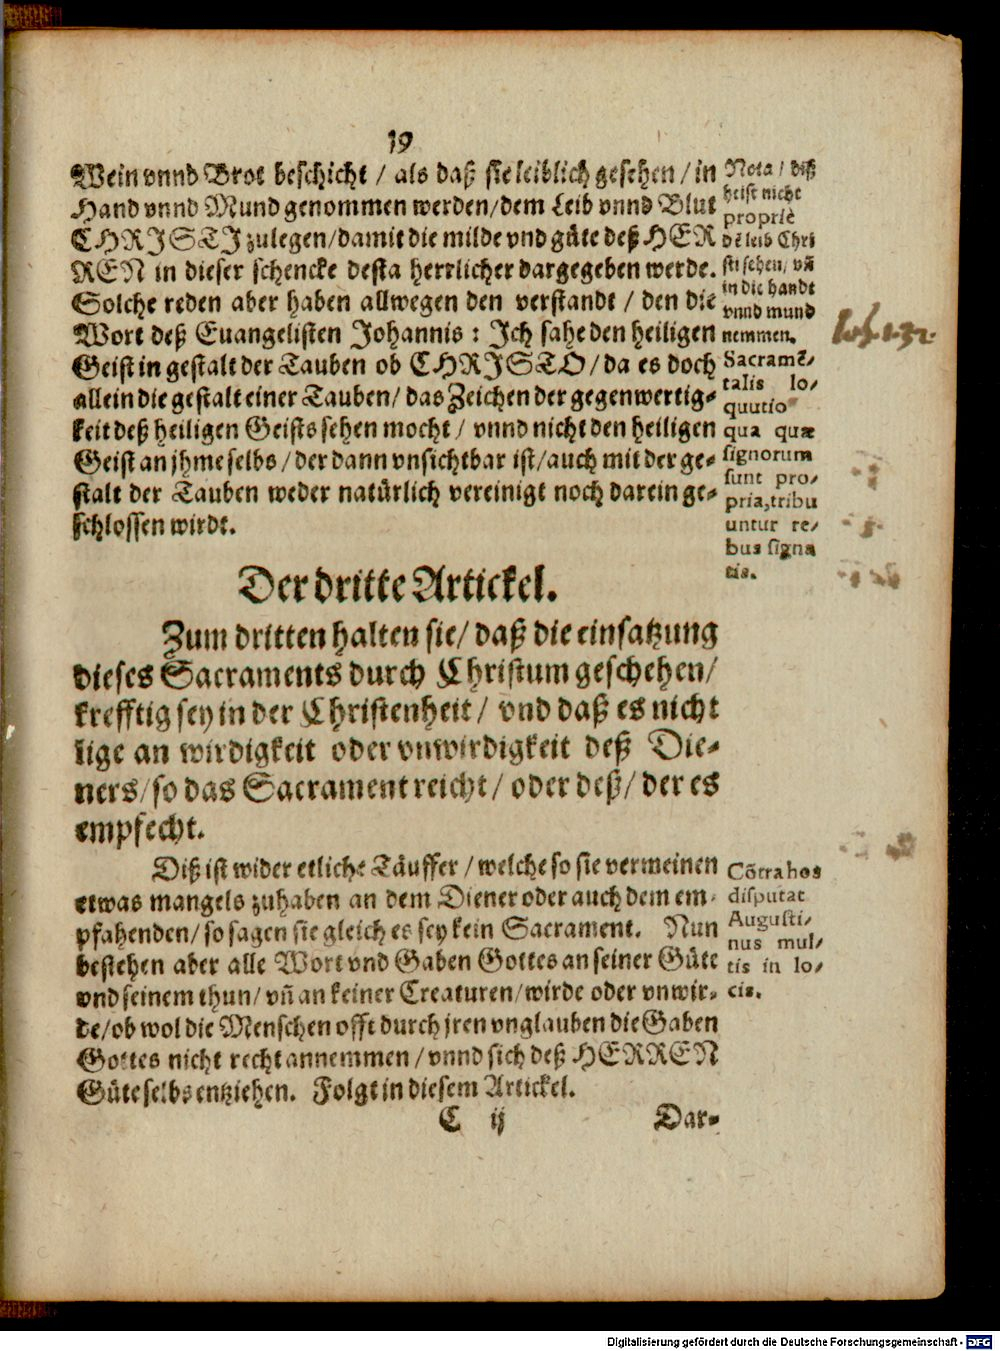 19
Wein vnnd Brot beschicht / als daß sie leiblich gesehen / in
Hand vnnd Mund genommen werden / dem Leib vnnd Blut
CHRISTI zulegen / damit die milde vnd güte deß HER
REN in dieser schencke desta herrlicher dargegeben werde.
Solche reden aber haben allwegen den verstandt / den die
Wort deß Euangelisten Johannis : Ich sahe den heiligen
Geist in gestalt der Tauben ob CHRISTO / da es doch
allein die gestalt einer Tauben / das Zeichen der gegenwertig-
keit deß heiligen Geists sehen mocht / vnnd nicht den heiligen
Geist an jhme selbs / der dann vnsichtbar ist / auch mit der ge-
stalt der Tauben weder natürlich vereinigt noch darein ge-
schlossen wirdt.
Nota / diß
heist nicht
propriè
dē leib Chri
sti sehen / vñ
in die handt
vnnd mund
nemmen.
Sacramē-
talis lo-
quutio
qua quæ
signorum
sunt pro-
pria, tribu
untur re-
bus signa
tis.
Der dritte Artickel.
Zum dritten halten sie / daß die einsatzung
dieses Sacraments durch Christum geschehen /
krefftig sey in der Christenheit / vnd daß es nicht
lige an wirdigkeit oder vnwirdigkeit deß Die-
ners / so das Sacrament reicht / oder deß / der es
empfecht.
Diß ist wider etliche Täuffer / welche so sie vermeinen
etwas mangels zuhaben an dem Diener oder auch dem em-
pfahenden / so sagen sie gleich es sey kein Sacrament. Nun
bestehen aber alle Wort vnd Gaben Gottes an seiner Güte
vnd seinem thun / vñ an keiner Creaturen / wirde oder vnwir-
de / ob wol die Menschen offt durch jren vnglauben die Gaben
Gottes nicht recht annemmen / vnnd sich deß HERREN
Güte selbs entziehen. Folgt in diesem Artickel.
Cōtra hos
disputat
Augusti-
nus mul-
tis in lo-
cis.
C ij
Dar-
Digitalisierung gefördert durch die Deutsche Forschungsgemeinschaft - DFG